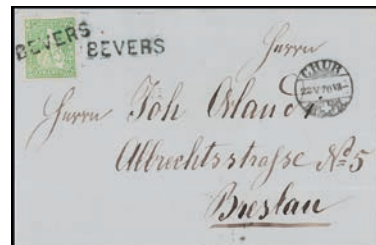 BEVERS
BEVERS
Herrn
CHUR
22 V 70
Herrn Joh Orlandi
Albrechtsstrasse No 5
Breslau